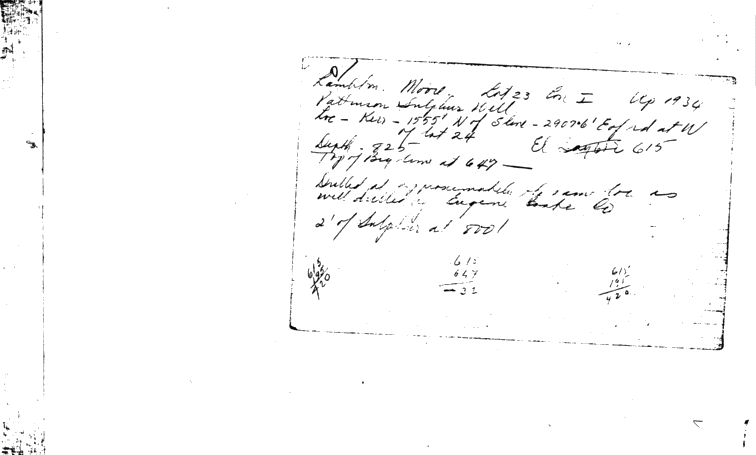 Lambton. Moore. Lot 23 Con I Sep 1934
Pattinson Sulphur Well
Loc - Kerr - 1555' N of S line - 2907.6' E of rd at W
of lot 24
Depth - 825 El 615
Top of Big lime at 647
Drilled at approximately same loc as
well drilled by Eugene Co
2' of Sulphur at 800'
615
195
420
615
647
-32
615
195
420